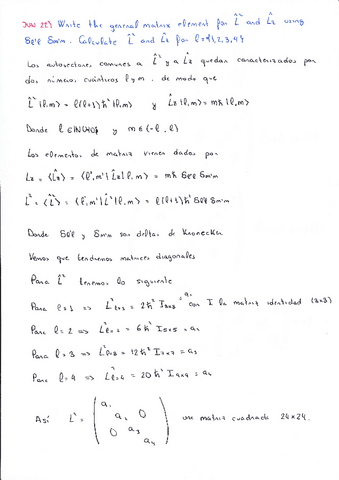 JUN 22) Write the general matrix element for L̂² and L̂z using
δℓ'ℓ δm'm. Calculate L̂² and L̂z for ℓ={1,2,3,4}
Los autovectores comunes a L̂² y a L̂z quedan caracterizados por
dos números cuánticos l y m. de modo que
L̂²|l,m> = l(l+1)ħ²|l,m> y L̂z|l,m> = mħ|l,m>
Donde l ∈ IN∪{0} y m ∈ (-l, l)
Los elementos de matriz vienen dados por
Lz = <L̂z> = <l',m'|L̂z|l,m> = mħ δl'l δm'm
L² = <L̂²> = <l',m'|L̂²|l,m> = l(l+1)ħ² δl'l δm'm
Donde δl'l y δm'm son deltas de Kronecker
Vemos que tendremos matrices diagonales
Para L̂² tenemos lo siguiente
Para l=1 => L²l=1 = 2ħ² I3x3 = a1 con I la matriz identidad (3x3)
Para l=2 => L²l=2 = 6ħ² I5x5 = a2
Para l=3 => L²l=3 = 12ħ² I7x7 = a3
Para l=4 => L²l=4 = 20ħ² I9x9 = a4
Así L² = ( a1 a2 0 0 a3 a4 ) una matriz cuadrada 24x24.